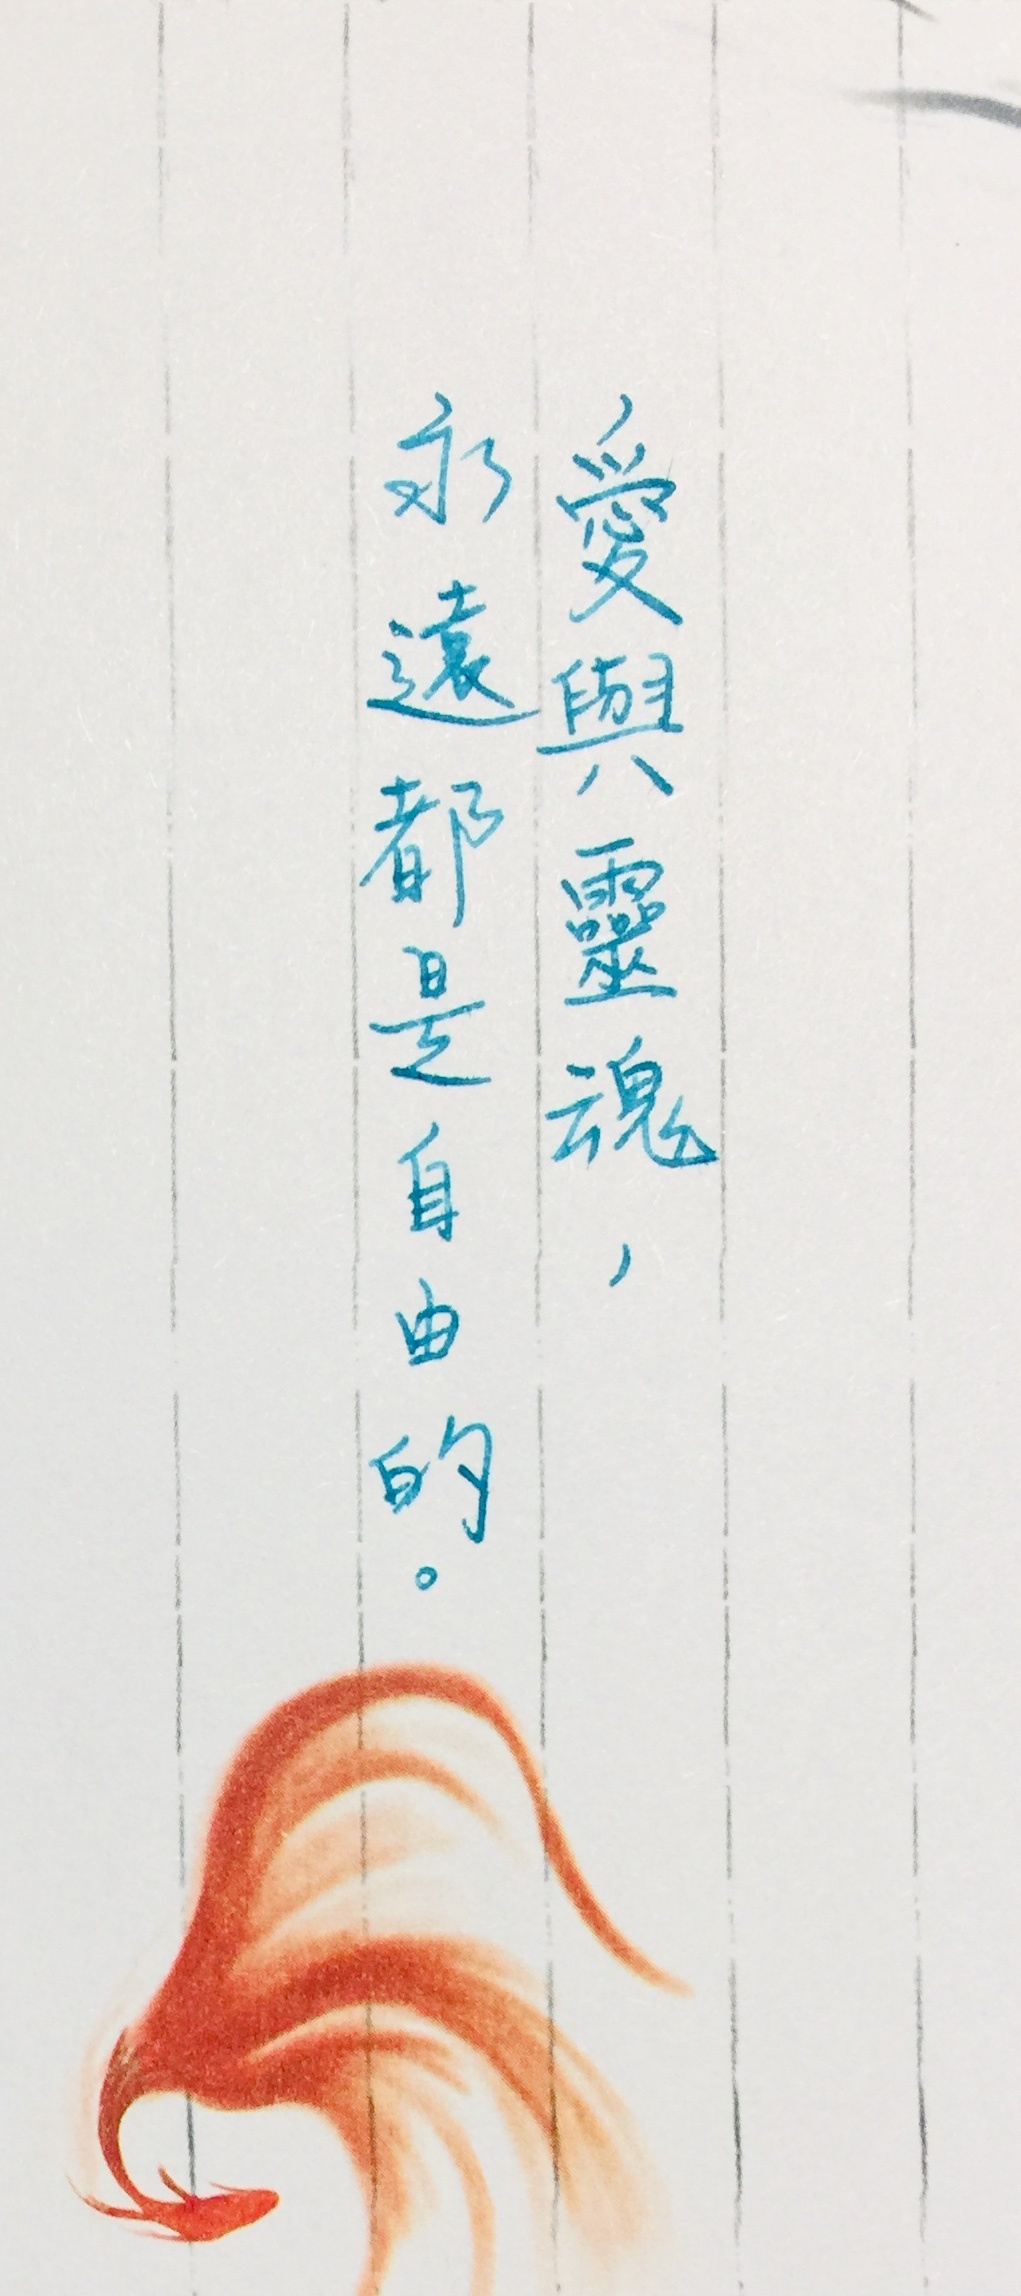 愛與靈魂，
永遠都是自由的。